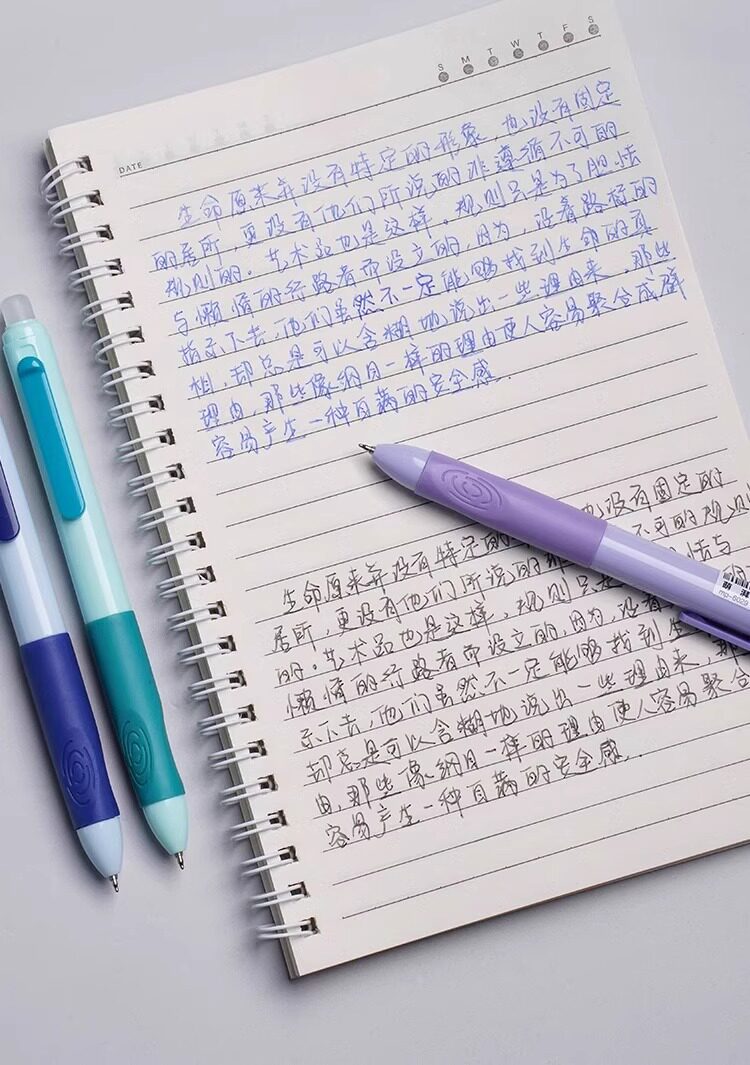 S M T W T F S
DATE
生命原来并没有特定的形象，也没有固定
的居所，更没有他们所说的非遵循不可的
规则的。艺术品也是这样。规则只是为了胆怯
与懒惰的行路者而设立的，因为，沿着路标的
指示下去，他们虽然不一定能够找到生命的真
相，却总是可以含糊地说出一些理由来，那些
理由，那些像纲目一样的理由使人容易聚合成群
容易产生一种自满的安全感．
生命原来并没有特定的 也没有固定的
居所，更没有他们所说的非 不可的规则
的。艺术品也是这样，规则只是 怯与
懒惰的行路者而设立的，因为，沿着
示下去，他们虽然不一定能够找到生
却总是可以含糊地说出一些理由来，那
由，那些像纲目一样的理由使人容易聚合
容易产生一种自满的安全感．